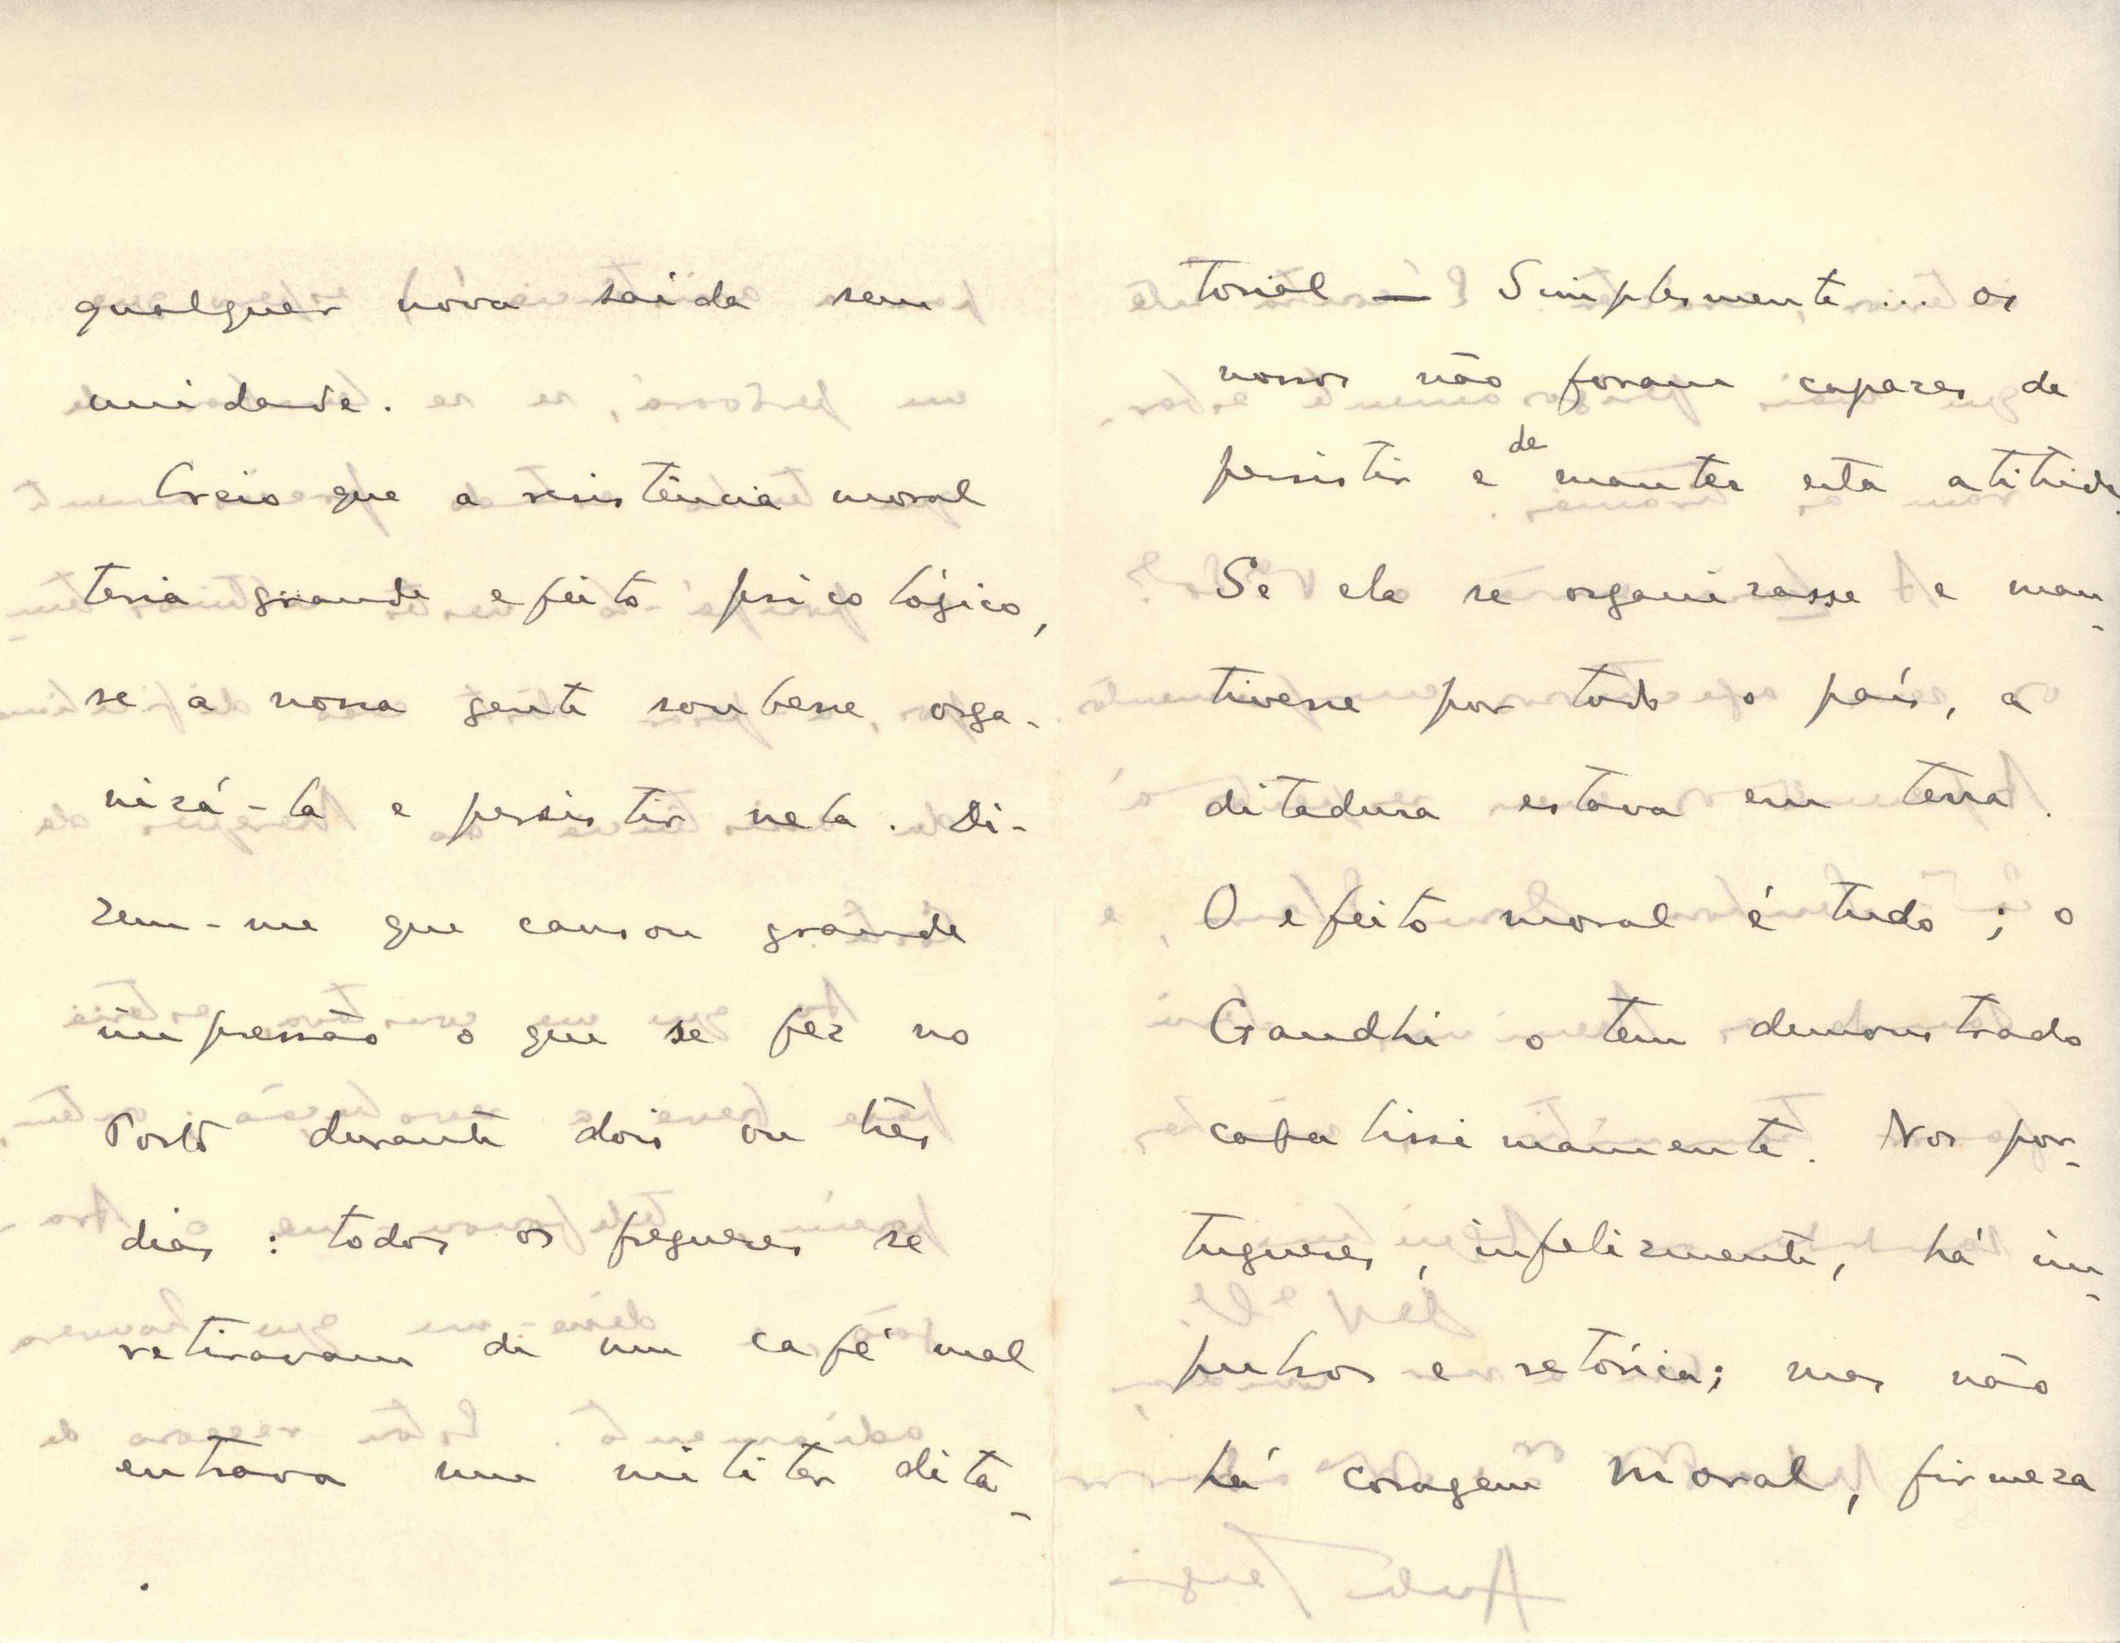 qualquer nóva saída sem
unidade.
Creio que a resistência moral
teria grande efeito psicológico,
se a nossa gente soubesse orga-
nizá-la e persistir nela. Di-
zem-me que causou grande
impressão o que se fez no
Porto durante dois ou três
dias : todos os fregueses se
retiravam de um café mal
entrava um militar dita-
torial — Simplesmente ... os
nossos não foram capazes de
persistir e de manter esta atitude.
Se ela se organizasse e man-
tivesse por todo o país, a
ditadura estava em terra.
O efeito moral é tudo ; o
Gandhi o tem demonstrado
cabalissimamente. Nos por-
tugueses, infelizmente, há im-
pulsos e retórica; mas não
há coragem moral, firmeza